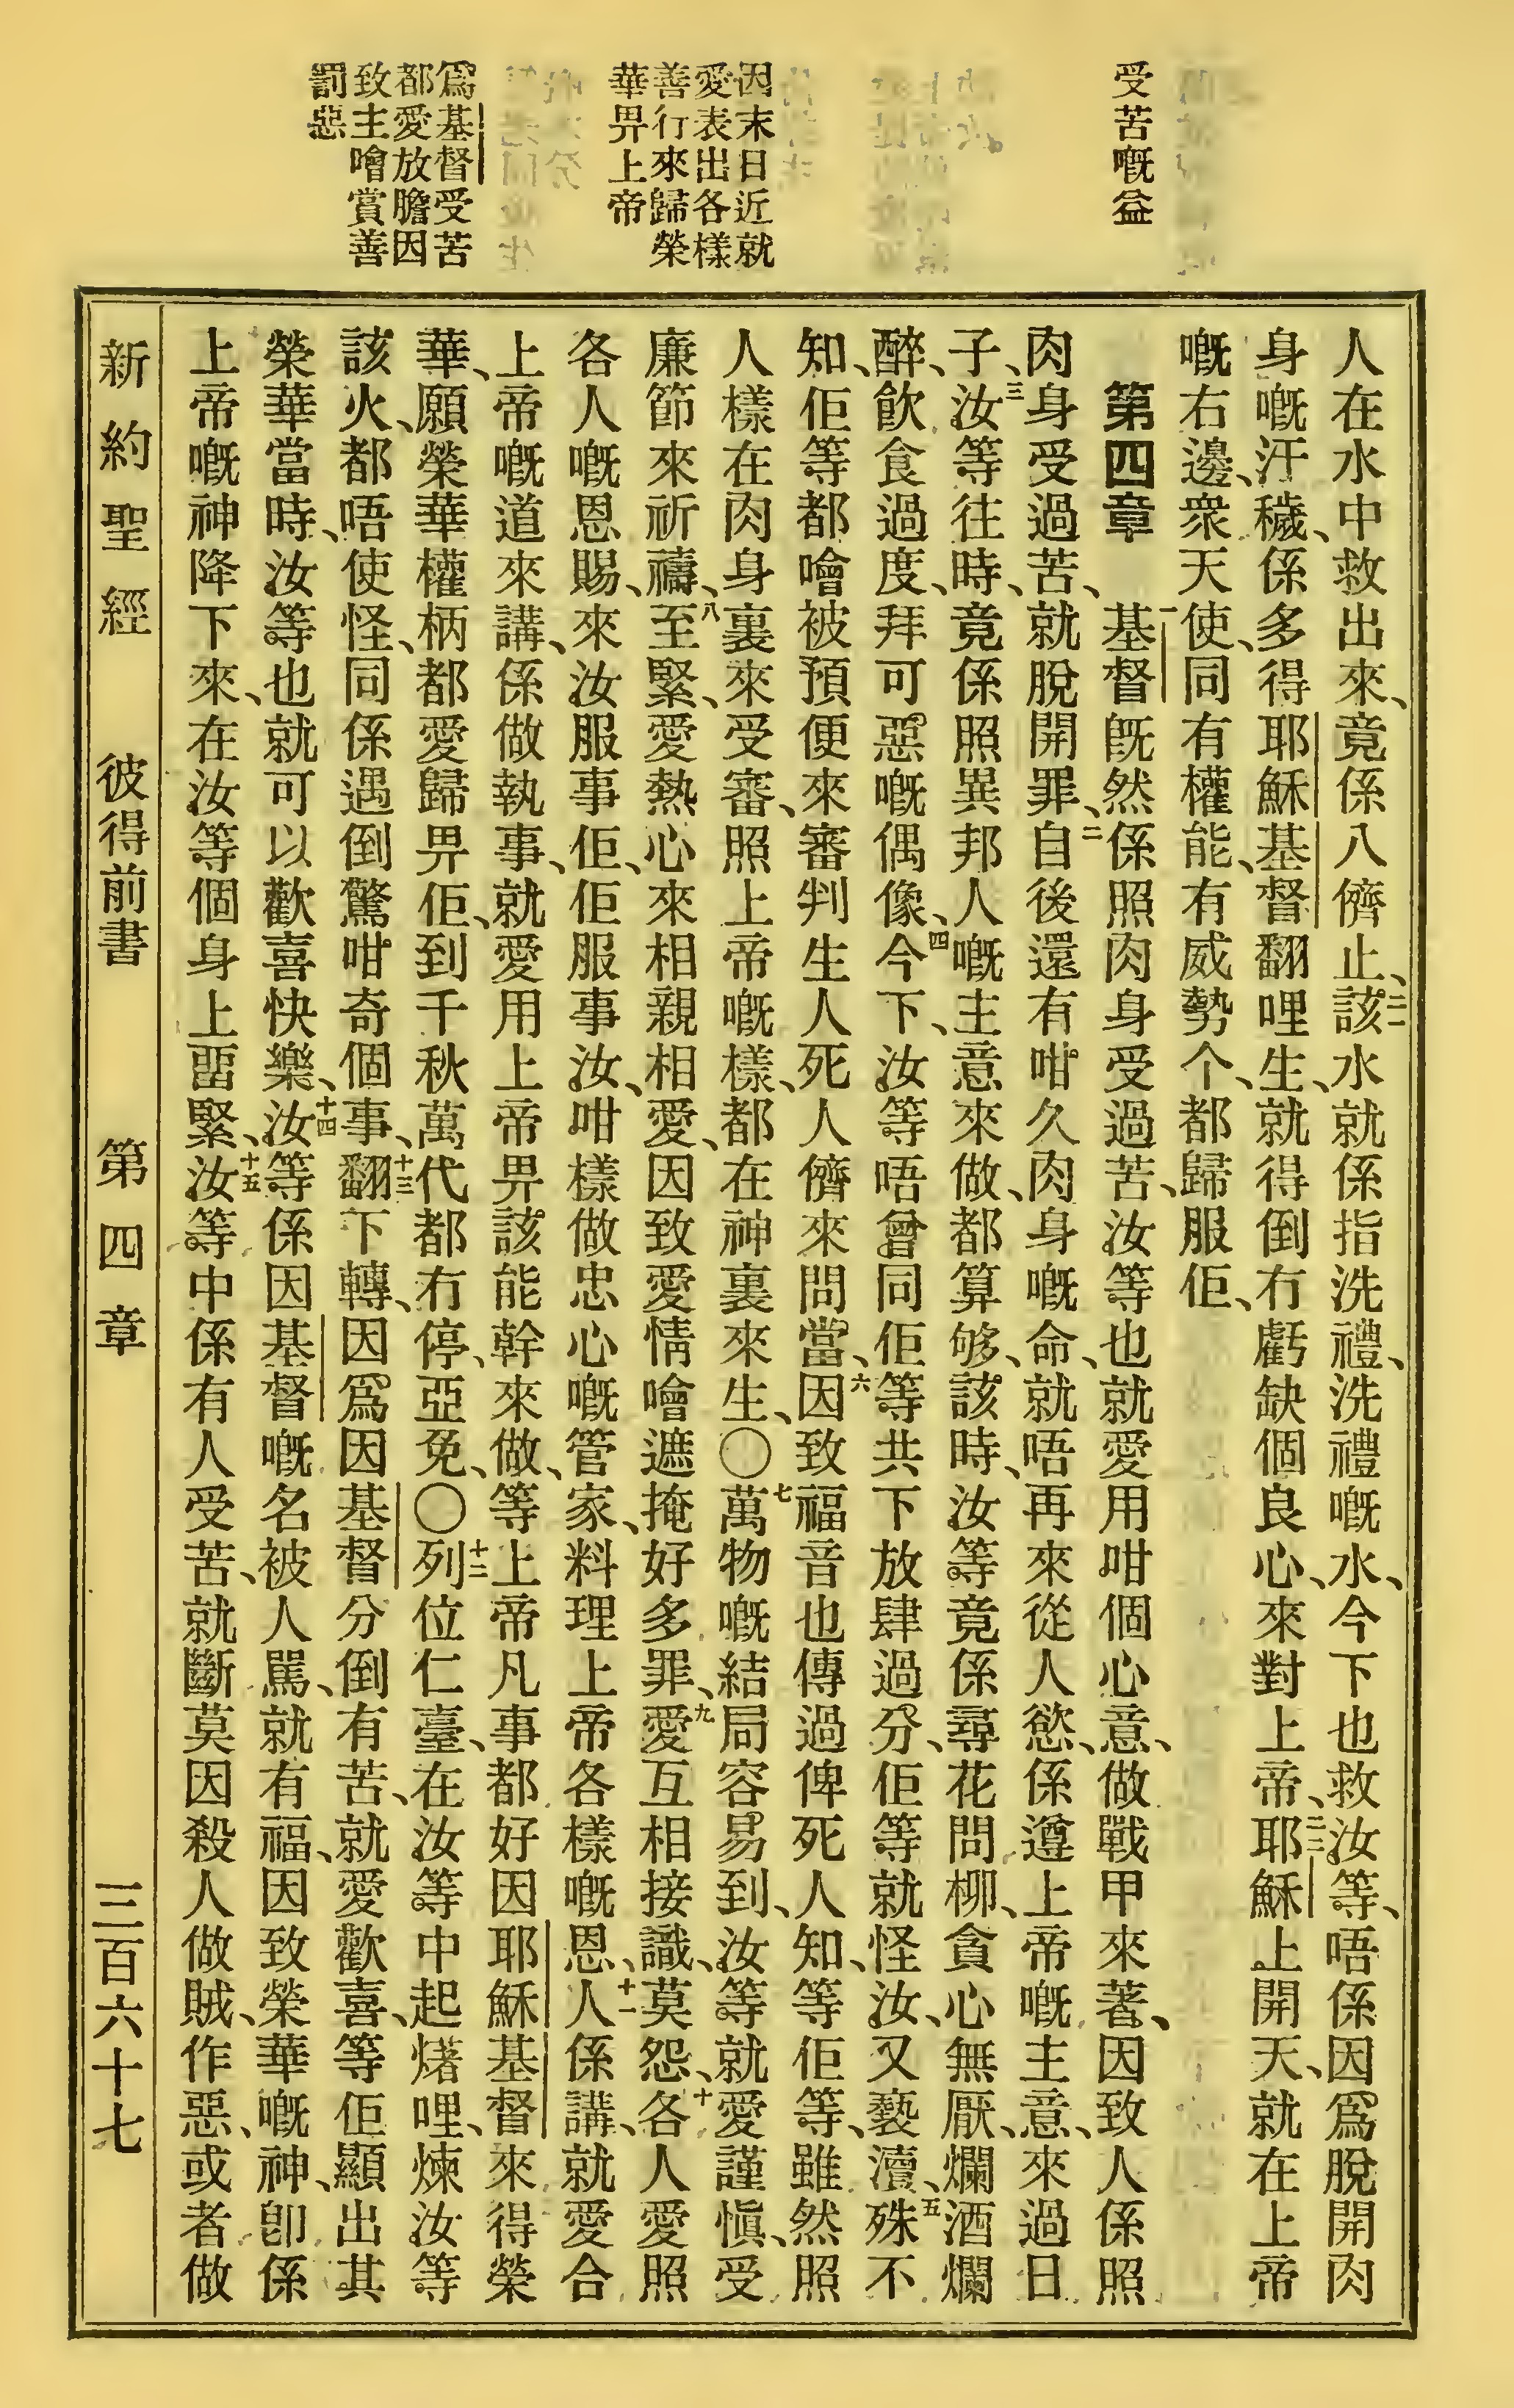 受苦嘅益
因末日近就
愛表出各樣
善行來歸榮
華畀上帝
爲基督受苦
都愛放膽因
致主噲賞善
罰惡
人在水中救出來、竟係八儕止、二一該水就係指洗禮、洗禮嘅水、今下也救汝等、唔係因爲脫開肉
身嘅汙穢、係多得耶穌基督翻哩生、就得倒冇虧缺個良心、來對上帝、二二耶穌上開天、就在上帝
嘅右邊、衆天使、同有權能、有威勢个、都歸服佢、
第四章 一基督既然係照肉身受過苦、汝等也就愛用咁個心意、做戰甲來著、因致人係照
肉身受過苦、就脫開罪、二自後還有咁久肉身嘅命、就唔再來從人慾、係遵上帝嘅主意、來過日
子、三汝等往時、竟係照異邦人嘅主意來做、都算够、該時、汝等竟係尋花問柳、貪心無厭、爛酒爛
醉、飲食過度、拜可惡嘅偶像、四今下、汝等唔曾同佢等共下放肆過分、佢等就怪汝、又褻瀆、五殊不
知、佢等都噲被預便來審判生人死人儕來問當、六因致福音也傳過俾死人知、等佢等、雖然照
人樣在肉身裏來受審、照上帝嘅樣、都在神裏來生、〇七萬物嘅結局容易到、汝等就愛謹愼、受
廉節來祈禱、八至緊、愛熱心來相親相愛、因致愛情噲遮掩好多罪、九愛互相接識、莫怨、十各人愛照
各人嘅恩賜、來汝服事佢、佢服事汝、咁樣做忠心嘅管家、料理上帝各樣嘅恩、十一人係講、就愛合
上帝嘅道來講、係做執事、就愛用上帝畀該能幹來做、等上帝凡事都好因耶穌基督來得榮
華、願榮華權柄都愛歸畀佢、到千秋萬代都冇停、亞免、〇十二列位仁臺、在汝等中起㷮哩、煉汝等
該火、都唔使怪、同係遇倒驚咁奇個事、十三翻下轉、因爲因基督分倒有苦、就愛歡喜、等佢顯出其
榮華當時、汝等也就可以歡喜快樂、十四汝等係因基督嘅名被人駡、就有福、因致榮華嘅神、卽係
上帝嘅神降下來、在汝等個身上畱緊、十五汝等中係有人受苦、就斷莫因殺人做賊、作惡、或者做
新約聖經 彼得前書 第四章 三百六十七